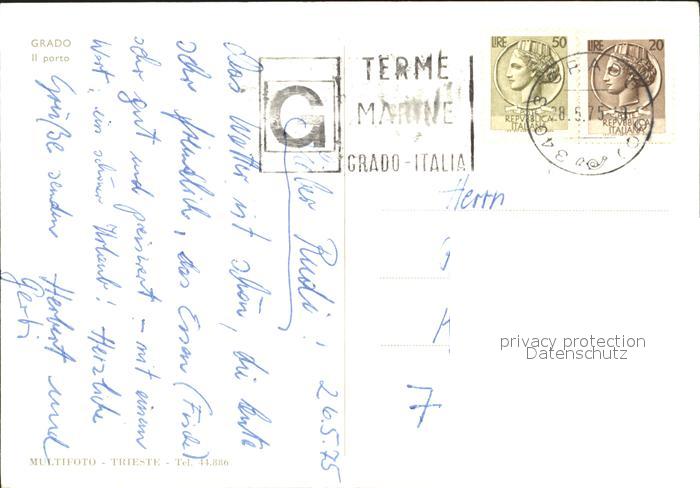 GRADO
Il porto
Lieber Rudi! 26.5.75
Das Wetter ist schön, die Leute
sehr freundlich, das Essen (Fische)
sehr gut und preiswert - mit einem
Wort: ein schöner Urlaub! Herzliche
Grüße senden Herbert und
Gerti
MULTIFOTO - TRIESTE - Tel. 44.886
G
TERME
MARINE
GRADO-ITALIA
LIRE 50
REPUBBLICA
ITALIANA
LIRE 20
REPUBBLICA
ITALIANA
28.5.75
Herrn
7
privacy protection
Datenschutz